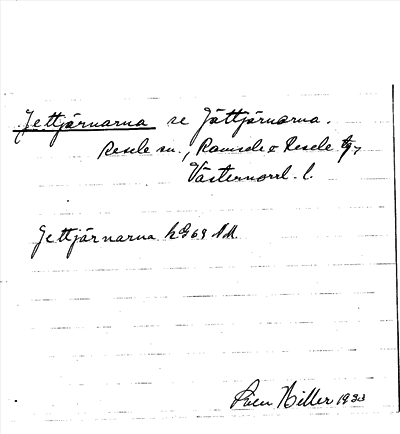 Jettjärnarna se Jättjärnarna.
Resele sn., Ramsele & Resele tg,
Västernorrl. l.
Jettjärnarna
Hiller 1933